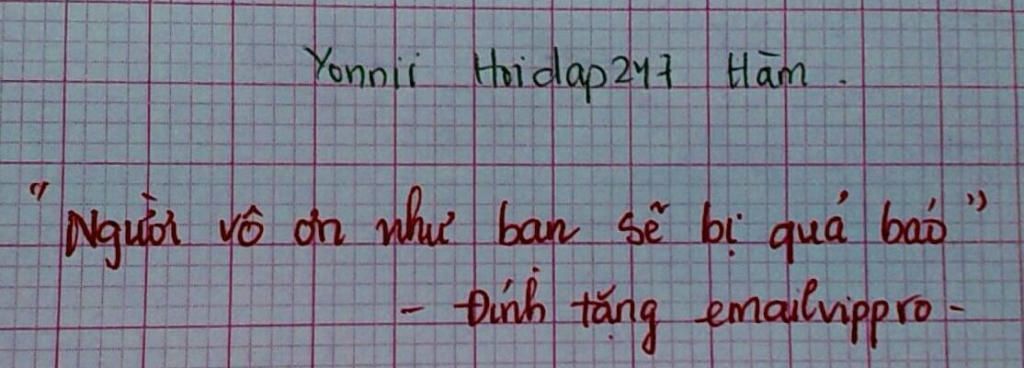 Yonnii Hoidap247 Hãm.
"Người vô ơn như bạn sẽ bị quả báo"
- Đính tặng emailvippro -